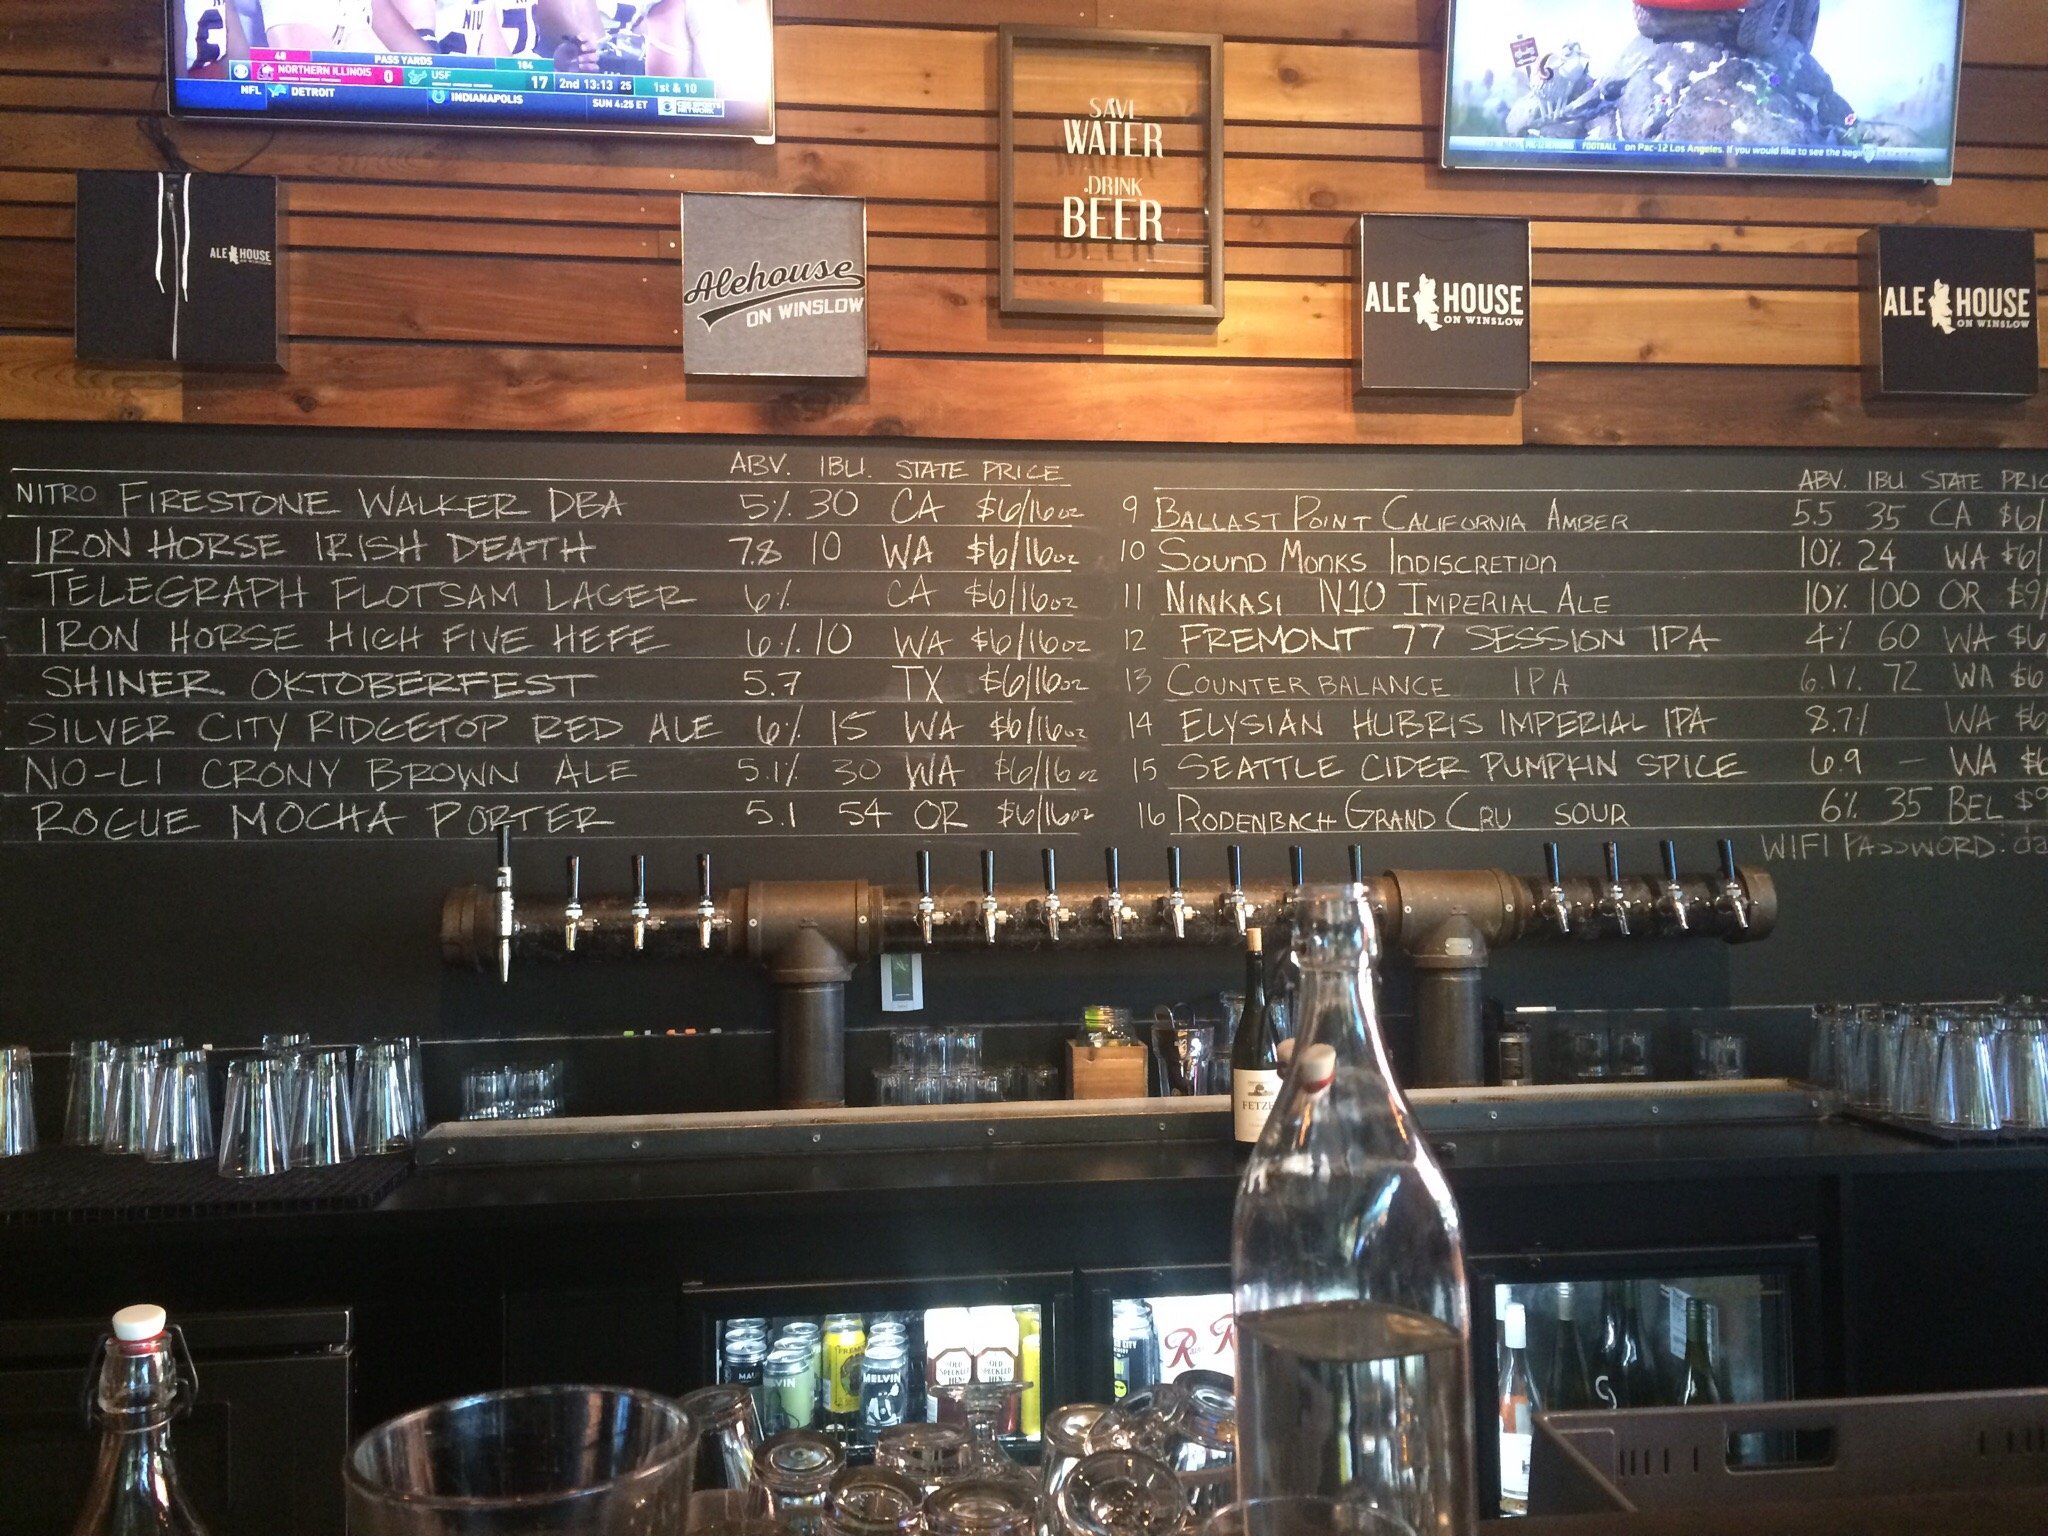 48 PASS YARDS 184
NORTHERN ILLINOIS 0 USF 17 2nd 13:13 25 1st & 10
NFL DETROIT INDIANAPOLIS SUN 4:25 ET CBS SPORTS NETWORK
NIU
FOOTBALL on Pac-12 Los Angeles. If you would like to see the begin
SAVE
WATER
DRINK
BEER
ALE HOUSE
ON WINSLOW
Alehouse
ON WINSLOW
ALE HOUSE
ON WINSLOW
ALE HOUSE
ON WINSLOW
ABV. IBU. STATE PRICE
NITRO FIRESTONE WALKER DBA 5% 30 CA $6/16oz
IRON HORSE IRISH DEATH 7.8 10 WA $6/16oz
TELEGRAPH FLOTSAM LAGER 6% CA $6/16oz
IRON HORSE HIGH FIVE HEFE 6% 10 WA $6/16oz
SHINER OKTOBERFEST 5.7 TX $6/16oz
SILVER CITY RIDGETOP RED ALE 6% 15 WA $6/16oz
NO-LI CRONY BROWN ALE 5.1% 30 WA $6/16oz
ROGUE MOCHA PORTER 5.1 54 OR $6/16oz
ABV. IBU STATE PRIC
9 BALLAST POINT CALIFORNIA AMBER 5.5 35 CA $6/
10 SOUND MONKS INDISCRETION 10% 24 WA $6/
11 NINKASI N10 IMPERIAL ALE 10% 100 OR $9/
12 FREMONT 77 SESSION IPA 4% 60 WA $6
13 COUNTERBALANCE IPA 6.1% 72 WA $6
14 ELYSIAN HUBRIS IMPERIAL IPA 8.7% WA $6
15 SEATTLE CIDER PUMPKIN SPICE 6.9 – WA $6
16 RODENBACH GRAND CRU SOUR 6% 35 BEL $9
WIFI PASSWORD:
FETZE
MELVIN
OLD SPECKLED HEN
OLD SPECKLED HEN
R R